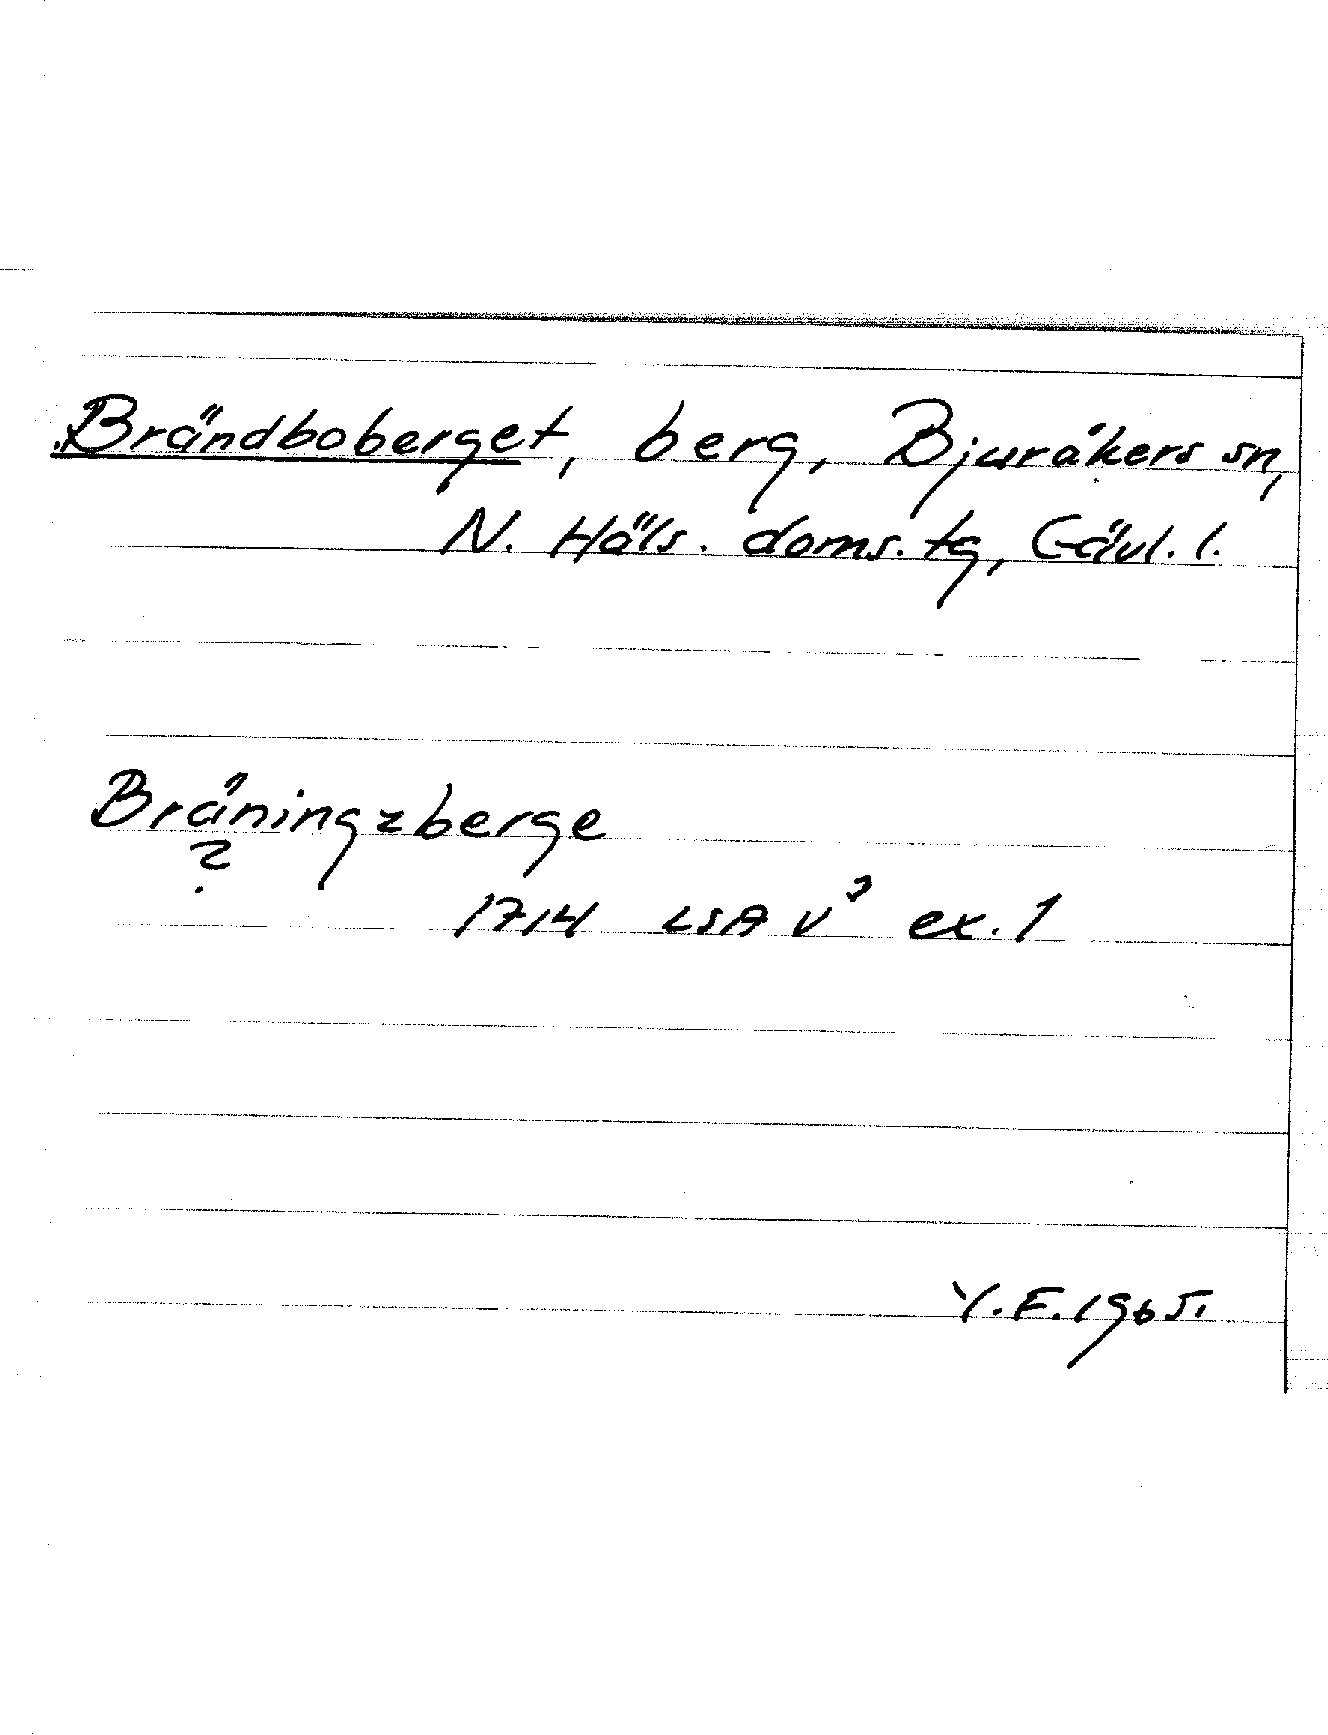 Brändboberget, berg, Bjuråkers sn,
N. Häls. doms. tg, Gävl. l.
Bräningzberge
?
1714 LSA V³ ex. 1
Y.E. 1965.